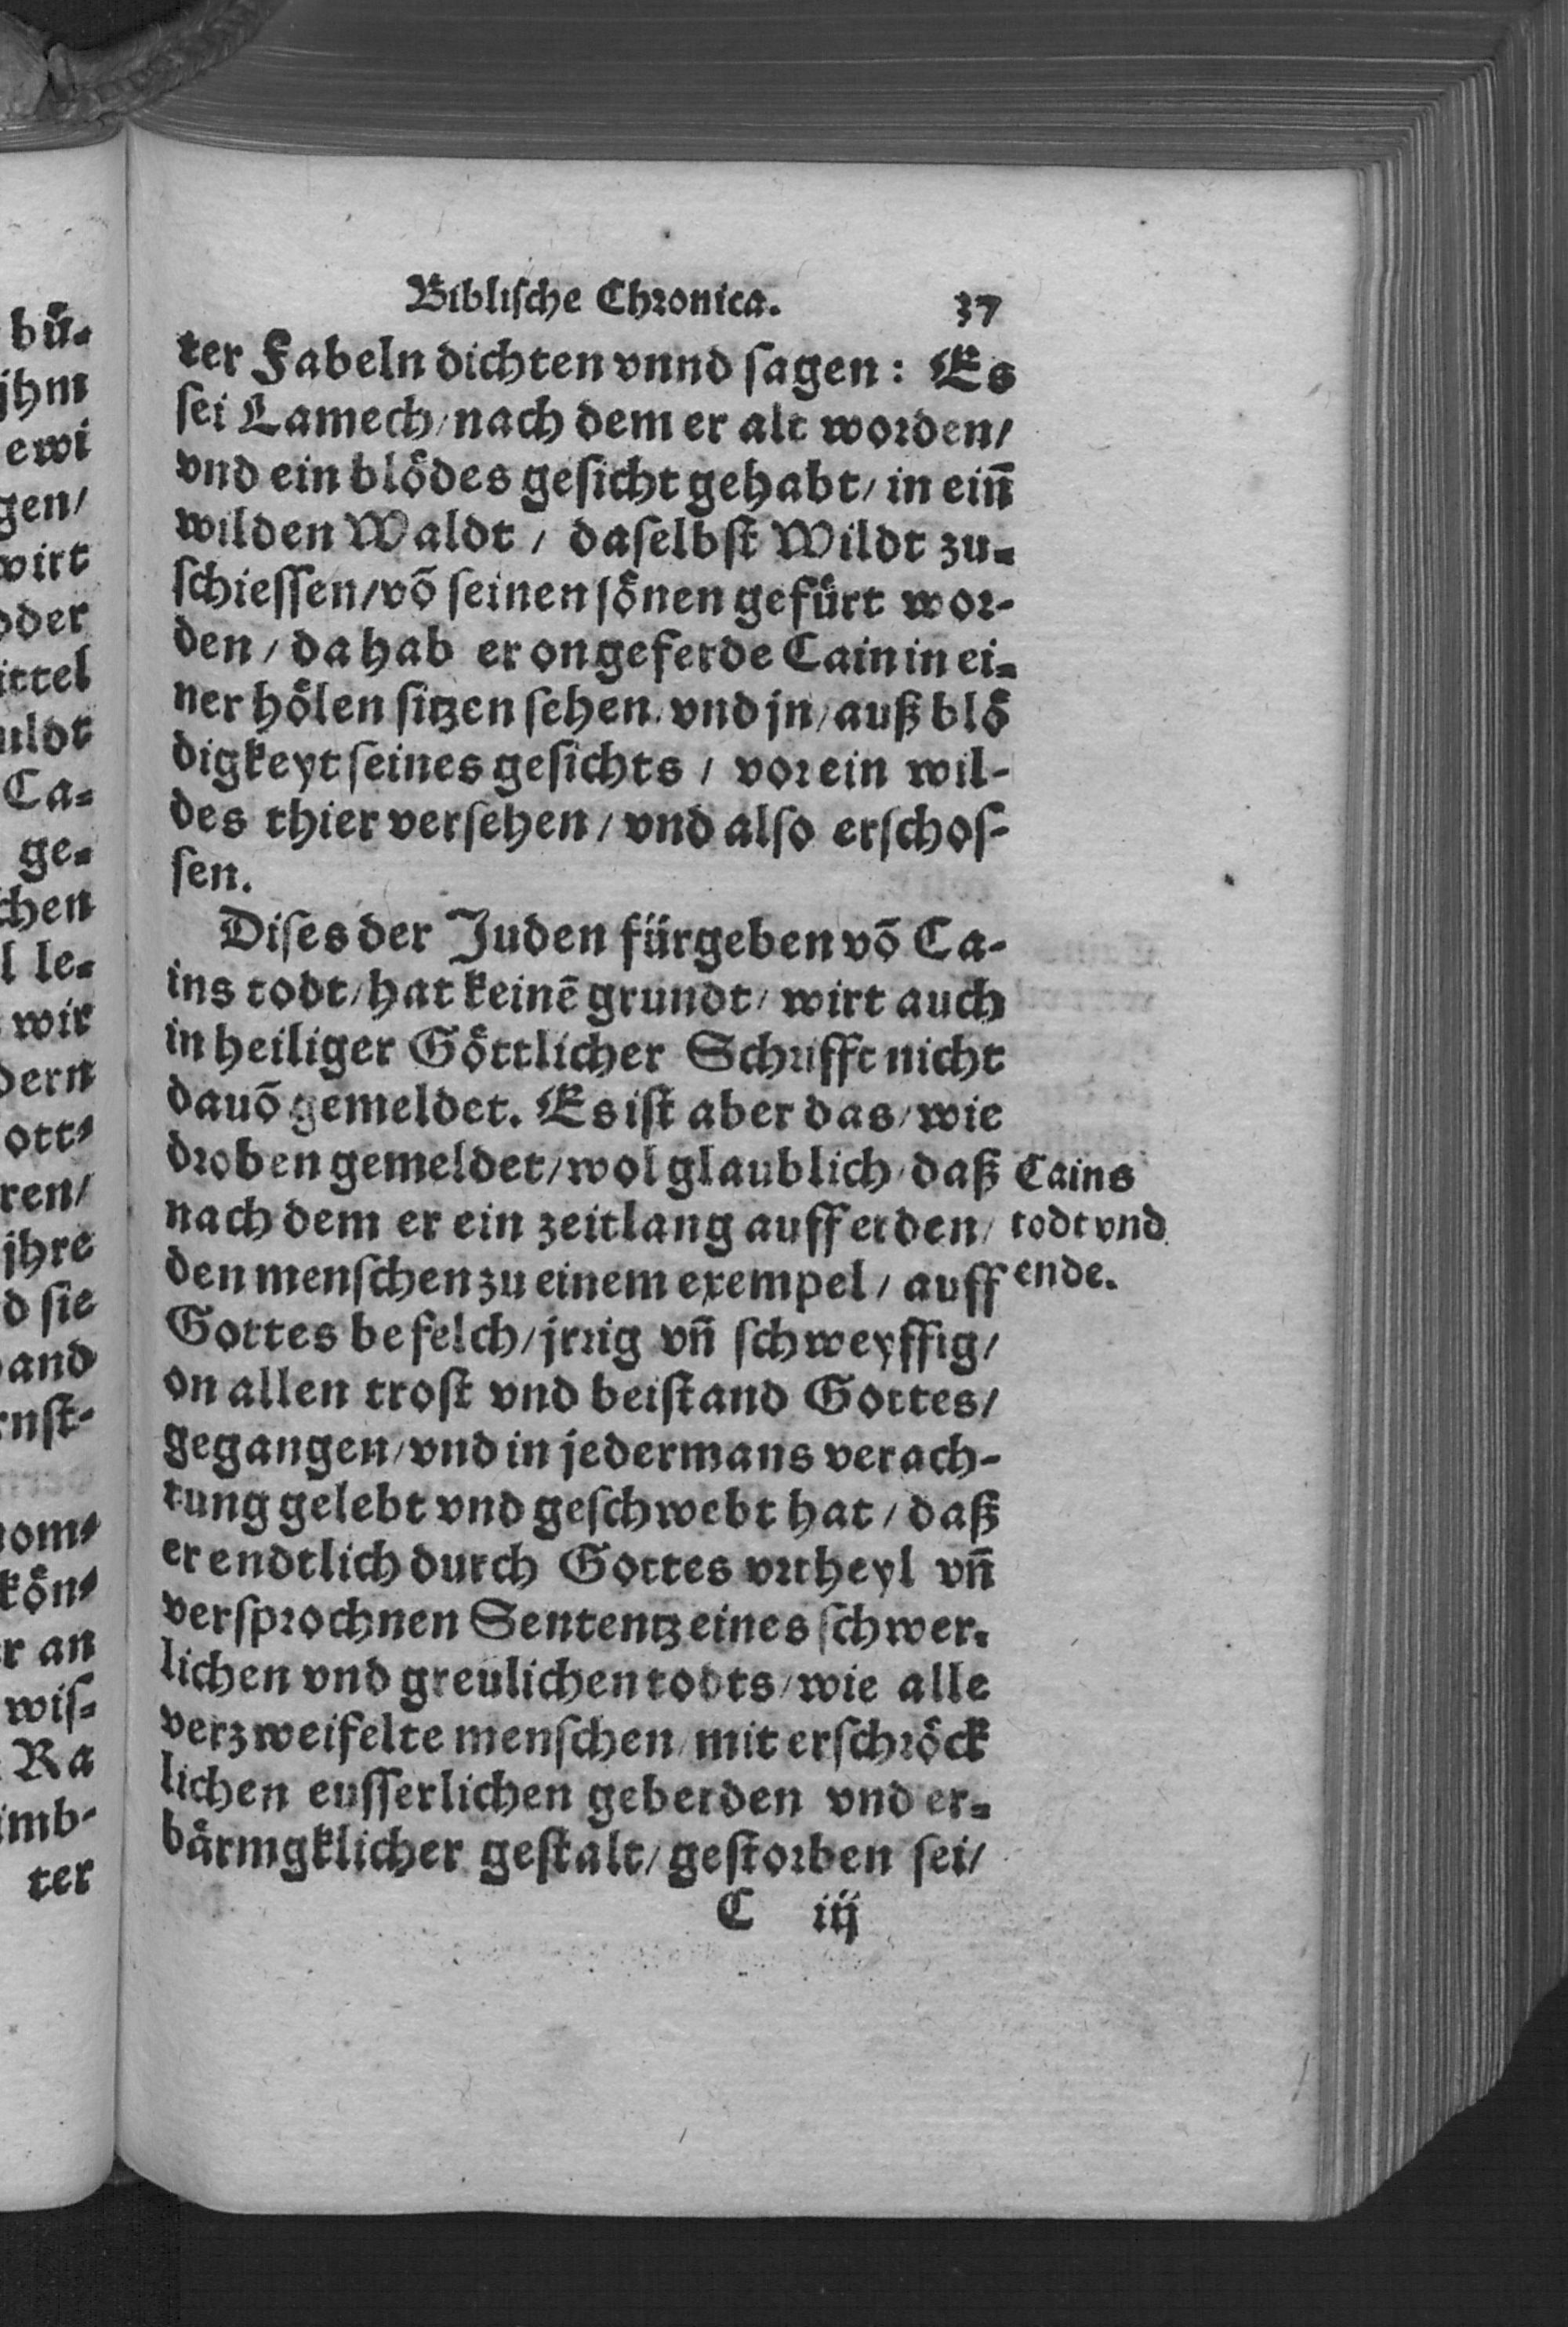 Biblische Chronica. 37
ter Fabeln dichten vnnd sagen: Es
sei Lamech/ nach dem er alt worden/
vnd ein blödes gesicht gehabt/ in einñ
wilden Waldt/ daselbst Wildt zu-
schiessen/ võ seinen sönen gefürt wor-
den/ da hab er ongeferde Cain in ei-
ner hölen sitzen sehen/ vnd jn/ auß blö
digkeyt seines gesichts/ vor ein wil-
des thier versehen/ vnd also erschos-
sen.
Dises der Juden fürgeben võ Ca-
ins todt/ hat keinē grundt/ wirt auch
in heiliger Göttlicher Schrifft nicht
dauõ gemeldet. Es ist aber das/ wie
droben gemeldet/ wol glaublich/ daß
nach dem er ein zeitlang auff erden/
den menschen zu einem exempel/ auff
Gottes befelch/ jrrig vñ schweyffig/
on allen trost vnd beistand Gottes/
gegangen/ vnd in jedermans verach-
tung gelebt vnd geschwebt hat/ daß
er endtlich durch Gottes vrtheyl vñ
versprochnen Sententz eines schwer-
lichen vnd greulichen todts/ wie alle
verzweifelte menschen/ mit erschröck
lichen eusserlichen geberden vnd er-
bärmgklicher gestalt/ gestorben sei/
C iij
Cains
todt vnd
ende.
bü-
jhm
ewi
gen/
wirt
oder
ittel
uldt
Ca-
ge-
chen
l le-
wir
dern
ott-
ren/
jhre
d sie
and
rnst-
nom-
kön-
r an
wis-
Ra
imb-
ter